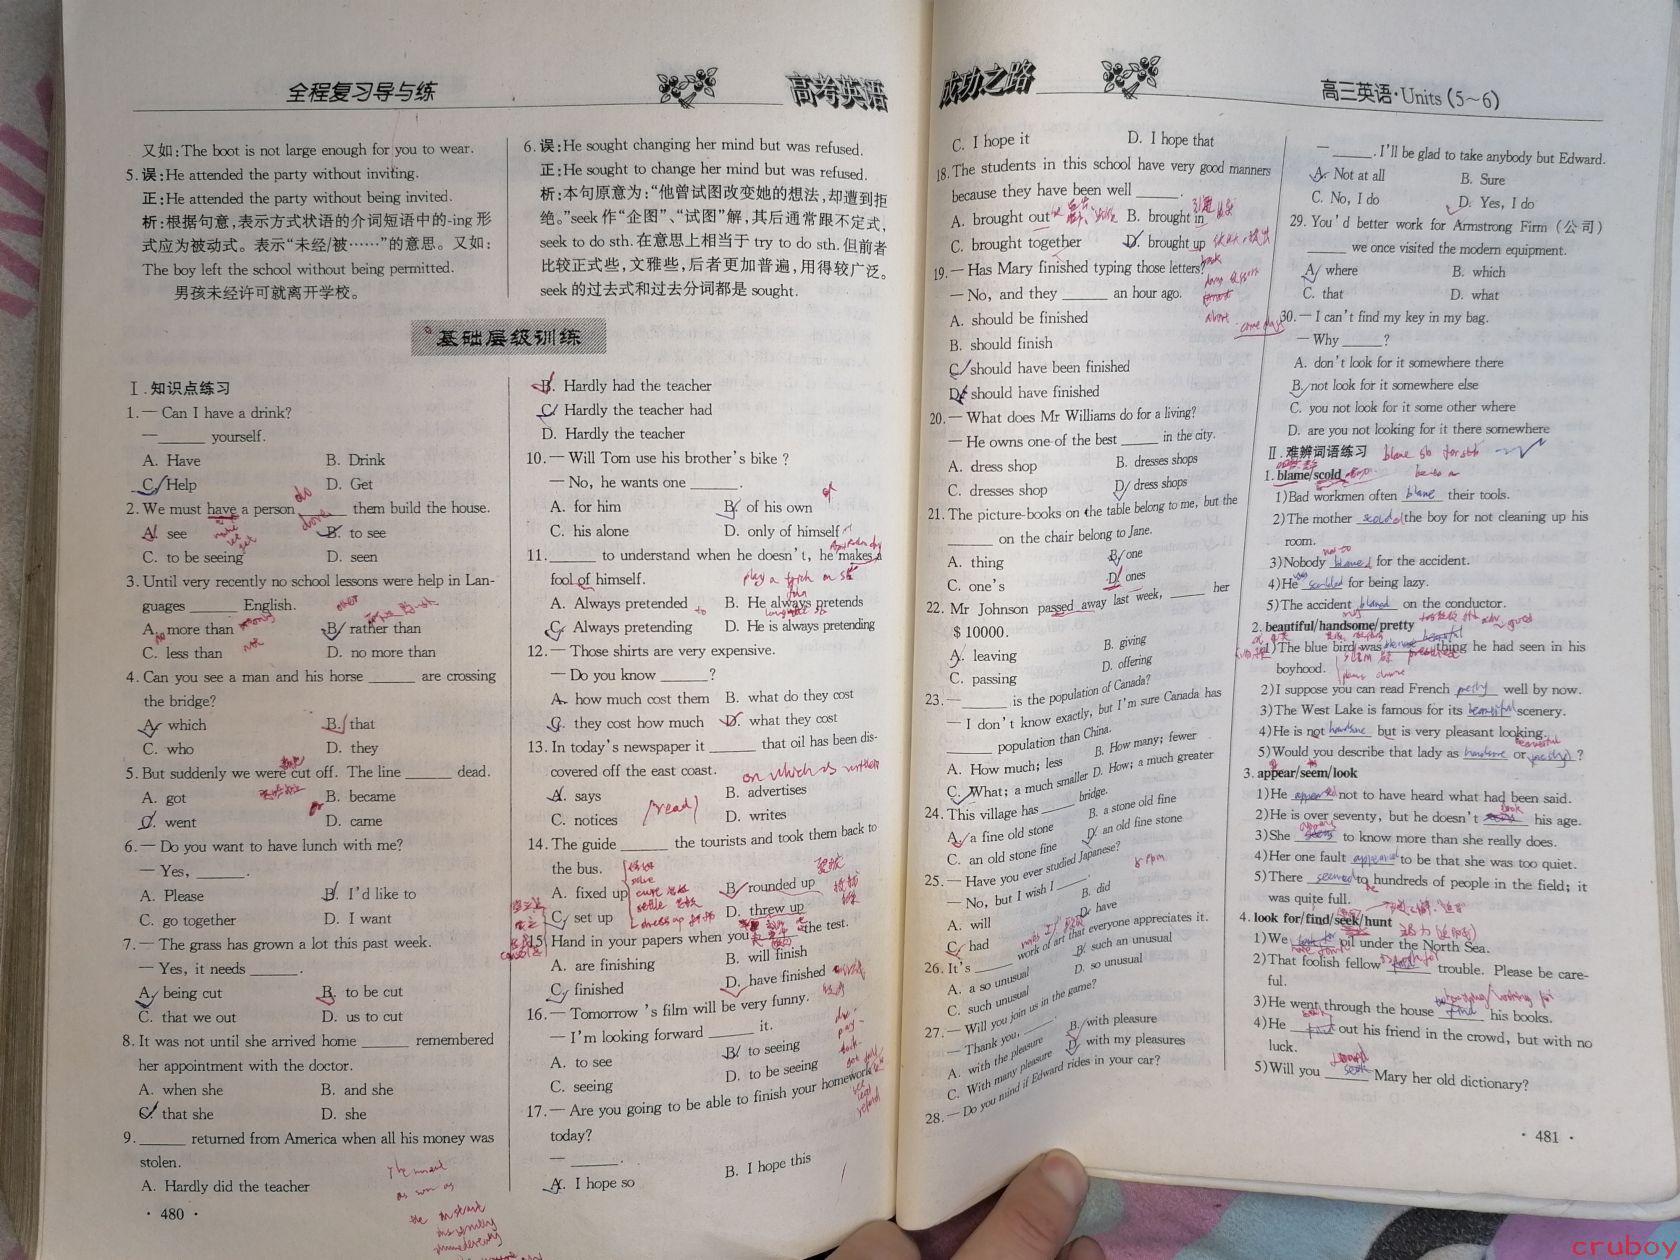 全程复习导与练
高考英语
又如:The boot is not large enough for you to wear.
5.误:He attended the party without inviting.
正:He attended the party without being invited.
析:根据句意,表示方式状语的介词短语中的-ing 形
式应为被动式。表示“未经/被……”的意思。又如:
The boy left the school without being permitted.
男孩未经许可就离开学校。
6.误:He sought changing her mind but was refused.
正:He sought to change her mind but was refused.
析:本句原意为:“他曾试图改变她的想法,却遭到拒
绝。”seek 作“企图”、“试图”解,其后通常跟不定式,
seek to do sth.在意思上相当于 try to do sth.但前者
比较正式些,文雅些,后者更加普遍,用得较广泛。
seek 的过去式和过去分词都是 sought.
基础层级训练
Ⅰ.知识点练习
1.— Can I have a drink?
—______ yourself.
A. Have B. Drink
C. Help D. Get
2. We must have a person ______ them build the house.
A. see B. to see
C. to be seeing D. seen
3. Until very recently no school lessons were help in Lan-
guages ______ English.
A. more than B. rather than
C. less than D. no more than
4. Can you see a man and his horse ______ are crossing
the bridge?
A. which B. that
C. who D. they
5. But suddenly we were cut off. The line ______ dead.
A. got B. became
C. went D. came
6.— Do you want to have lunch with me?
— Yes, ______.
A. Please B. I'd like to
C. go together D. I want
7.— The grass has grown a lot this past week.
— Yes, it needs ______.
A. being cut B. to be cut
C. that we out D. us to cut
8. It was not until she arrived home ______ remembered
her appointment with the doctor.
A. when she B. and she
C. that she D. she
9. ______ returned from America when all his money was
stolen.
A. Hardly did the teacher
· 480 ·
B. Hardly had the teacher
C. Hardly the teacher had
D. Hardly the teacher
10.— Will Tom use his brother's bike ?
— No, he wants one ______.
A. for him B. of his own
C. his alone D. only of himself
11. ______ to understand when he doesn't, he makes a
fool of himself.
play a trick on sb
A. Always pretended B. He always pretends
C. Always pretending D. He is always pretending
12.— Those shirts are very expensive.
— Do you know ______?
A. how much cost them B. what do they cost
C. they cost how much D. what they cost
13. In today's newspaper it ______ that oil has been dis-
covered off the east coast.
on which is written
A. says B. advertises
C. notices D. writes
read
14. The guide ______ the tourists and took them back to
the bus.
A. fixed up B. rounded up
C. set up D. threw up
15. Hand in your papers when you ______ the test.
A. are finishing B. will finish
C. finished D. have finished
16.— Tomorrow 's film will be very funny.
— I'm looking forward ______ it.
A. to see B. to seeing
C. seeing D. to be seeing
17.— Are you going to be able to finish your homework
today?
— ______.
A. I hope so B. I hope this
成功之路
高三英语·Units (5~6)
C. I hope it D. I hope that
18. The students in this school have very good manners
because they have been well ______.
A. brought out B. brought in
C. brought together D. brought up
19.— Has Mary finished typing those letters?
— No, and they ______ an hour ago.
A. should be finished
B. should finish
C. should have been finished
D. should have finished
20.— What does Mr Williams do for a living?
— He owns one of the best ______ in the city.
A. dress shop B. dresses shops
C. dresses shop D. dress shops
21. The picture-books on the table belong to me, but the
______ on the chair belong to Jane.
A. thing B. one
C. one's D. ones
22. Mr Johnson passed away last week, ______ her
$ 10000.
A. leaving B. giving
C. passing D. offering
23.— ______ is the population of Canada?
— I don't know exactly, but I'm sure Canada has
______ population than China.
A. How much; less B. How many; fewer
C. What; a much smaller D. How; a much greater
24. This village has ______ bridge.
A. a fine old stone B. a stone old fine
C. an old stone fine D. an old fine stone
25.— Have you ever studied Japanese?
— No, but I wish I ______.
A. will B. did
C. had D. have
26. It's ______ work of art that everyone appreciates it.
A. a so unusual B. such an unusual
C. such unusual D. so unusual
27.— Will you join us in the game?
— Thank you, ______.
A. with the pleasure B. with pleasure
C. With many pleasure D. with my pleasures
28.— Do you mind if Edward rides in your car?
— ______. I'll be glad to take anybody but Edward.
A. Not at all B. Sure
C. No, I do D. Yes, I do
29. You'd better work for Armstrong Firm (公司)
______ we once visited the modern equipment.
A. where B. which
C. that D. what
30.— I can't find my key in my bag.
— Why ______?
A. don't look for it somewhere there
B. not look for it somewhere else
C. you not look for it some other where
D. are you not looking for it there somewhere
Ⅱ.难辨词语练习 blame sb for sth
1. blame/scold
1)Bad workmen often blame their tools.
2)The mother scolded the boy for not cleaning up his
room.
3)Nobody blamed for the accident.
4)He scolded for being lazy.
5)The accident blamed on the conductor.
2. beautiful/handsome/pretty
1)The blue bird was ______ thing he had seen in his
boyhood.
2)I suppose you can read French pretty well by now.
3)The West Lake is famous for its beautiful scenery.
4)He is not handsome but is very pleasant looking.
5)Would you describe that lady as handsome or pretty?
3. appear/seem/look
1)He appeared not to have heard what had been said.
2)He is over seventy, but he doesn't look his age.
3)She appears to know more than she really does.
4)Her one fault appeared to be that she was too quiet.
5)There seemed to be hundreds of people in the field; it
was quite full.
4. look for/find/seek/hunt
1)We ______ oil under the North Sea.
2)That foolish fellow ______ trouble. Please be care-
ful.
3)He went through the house ______ his books.
4)He ______ out his friend in the crowd, but with no
luck.
5)Will you ______ Mary her old dictionary?
· 481 ·
cruboy